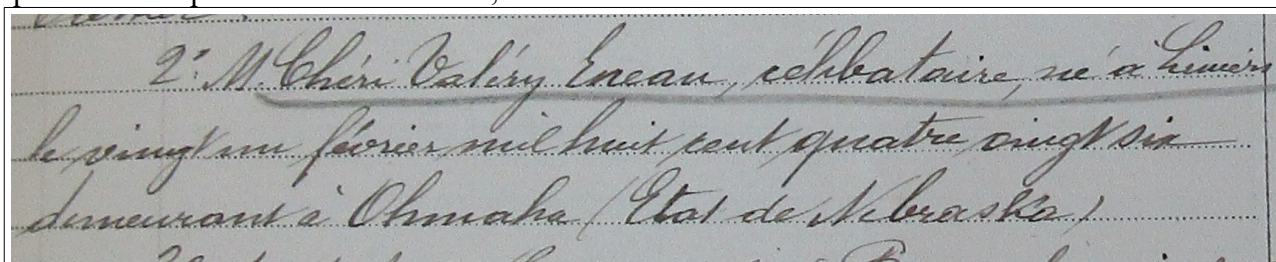 2° M. Chéri Valéry Eneau, célibataire, né à Liniers
le vingt un février mil huit cent quatre vingt six
demeurant à Ohmaha (Etat de Nebraska)